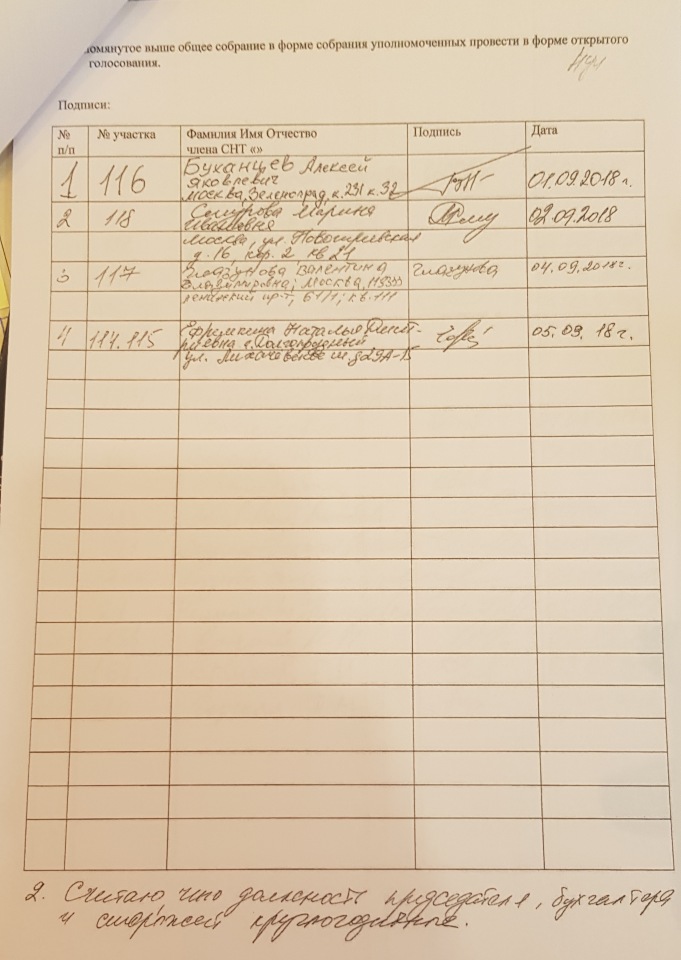 омянутое выше общее собрание в форме собрания уполномоченных провести в форме открытого
голосования.
Подписи:
№ п/п № участка Фамилия Имя Отчество члена СНТ «» Подпись Дата
1 116 Буханцев Алексей
Яковлевич
Москва, Зеленоград, к. 231 к. 32 01.09.2018 г.
2 118 Марина
Ивановна 02.09.2018
Москва, ул.
д. 16, кор. 2, кв 21
3 117 Глазунова Валентина Глазунова 04.09.2018г.
Владимировна; Москва,
Ленинский пр-т, 61/1; кв. 111
4 114.115 Наталья Дмит-
риевна г. Долгопрудный 05.09.18 г.
ул. Лихачевское ш. д29А-
2. Считаю, что должность председателя, бухгалтера
и сторожей круглогодичные.